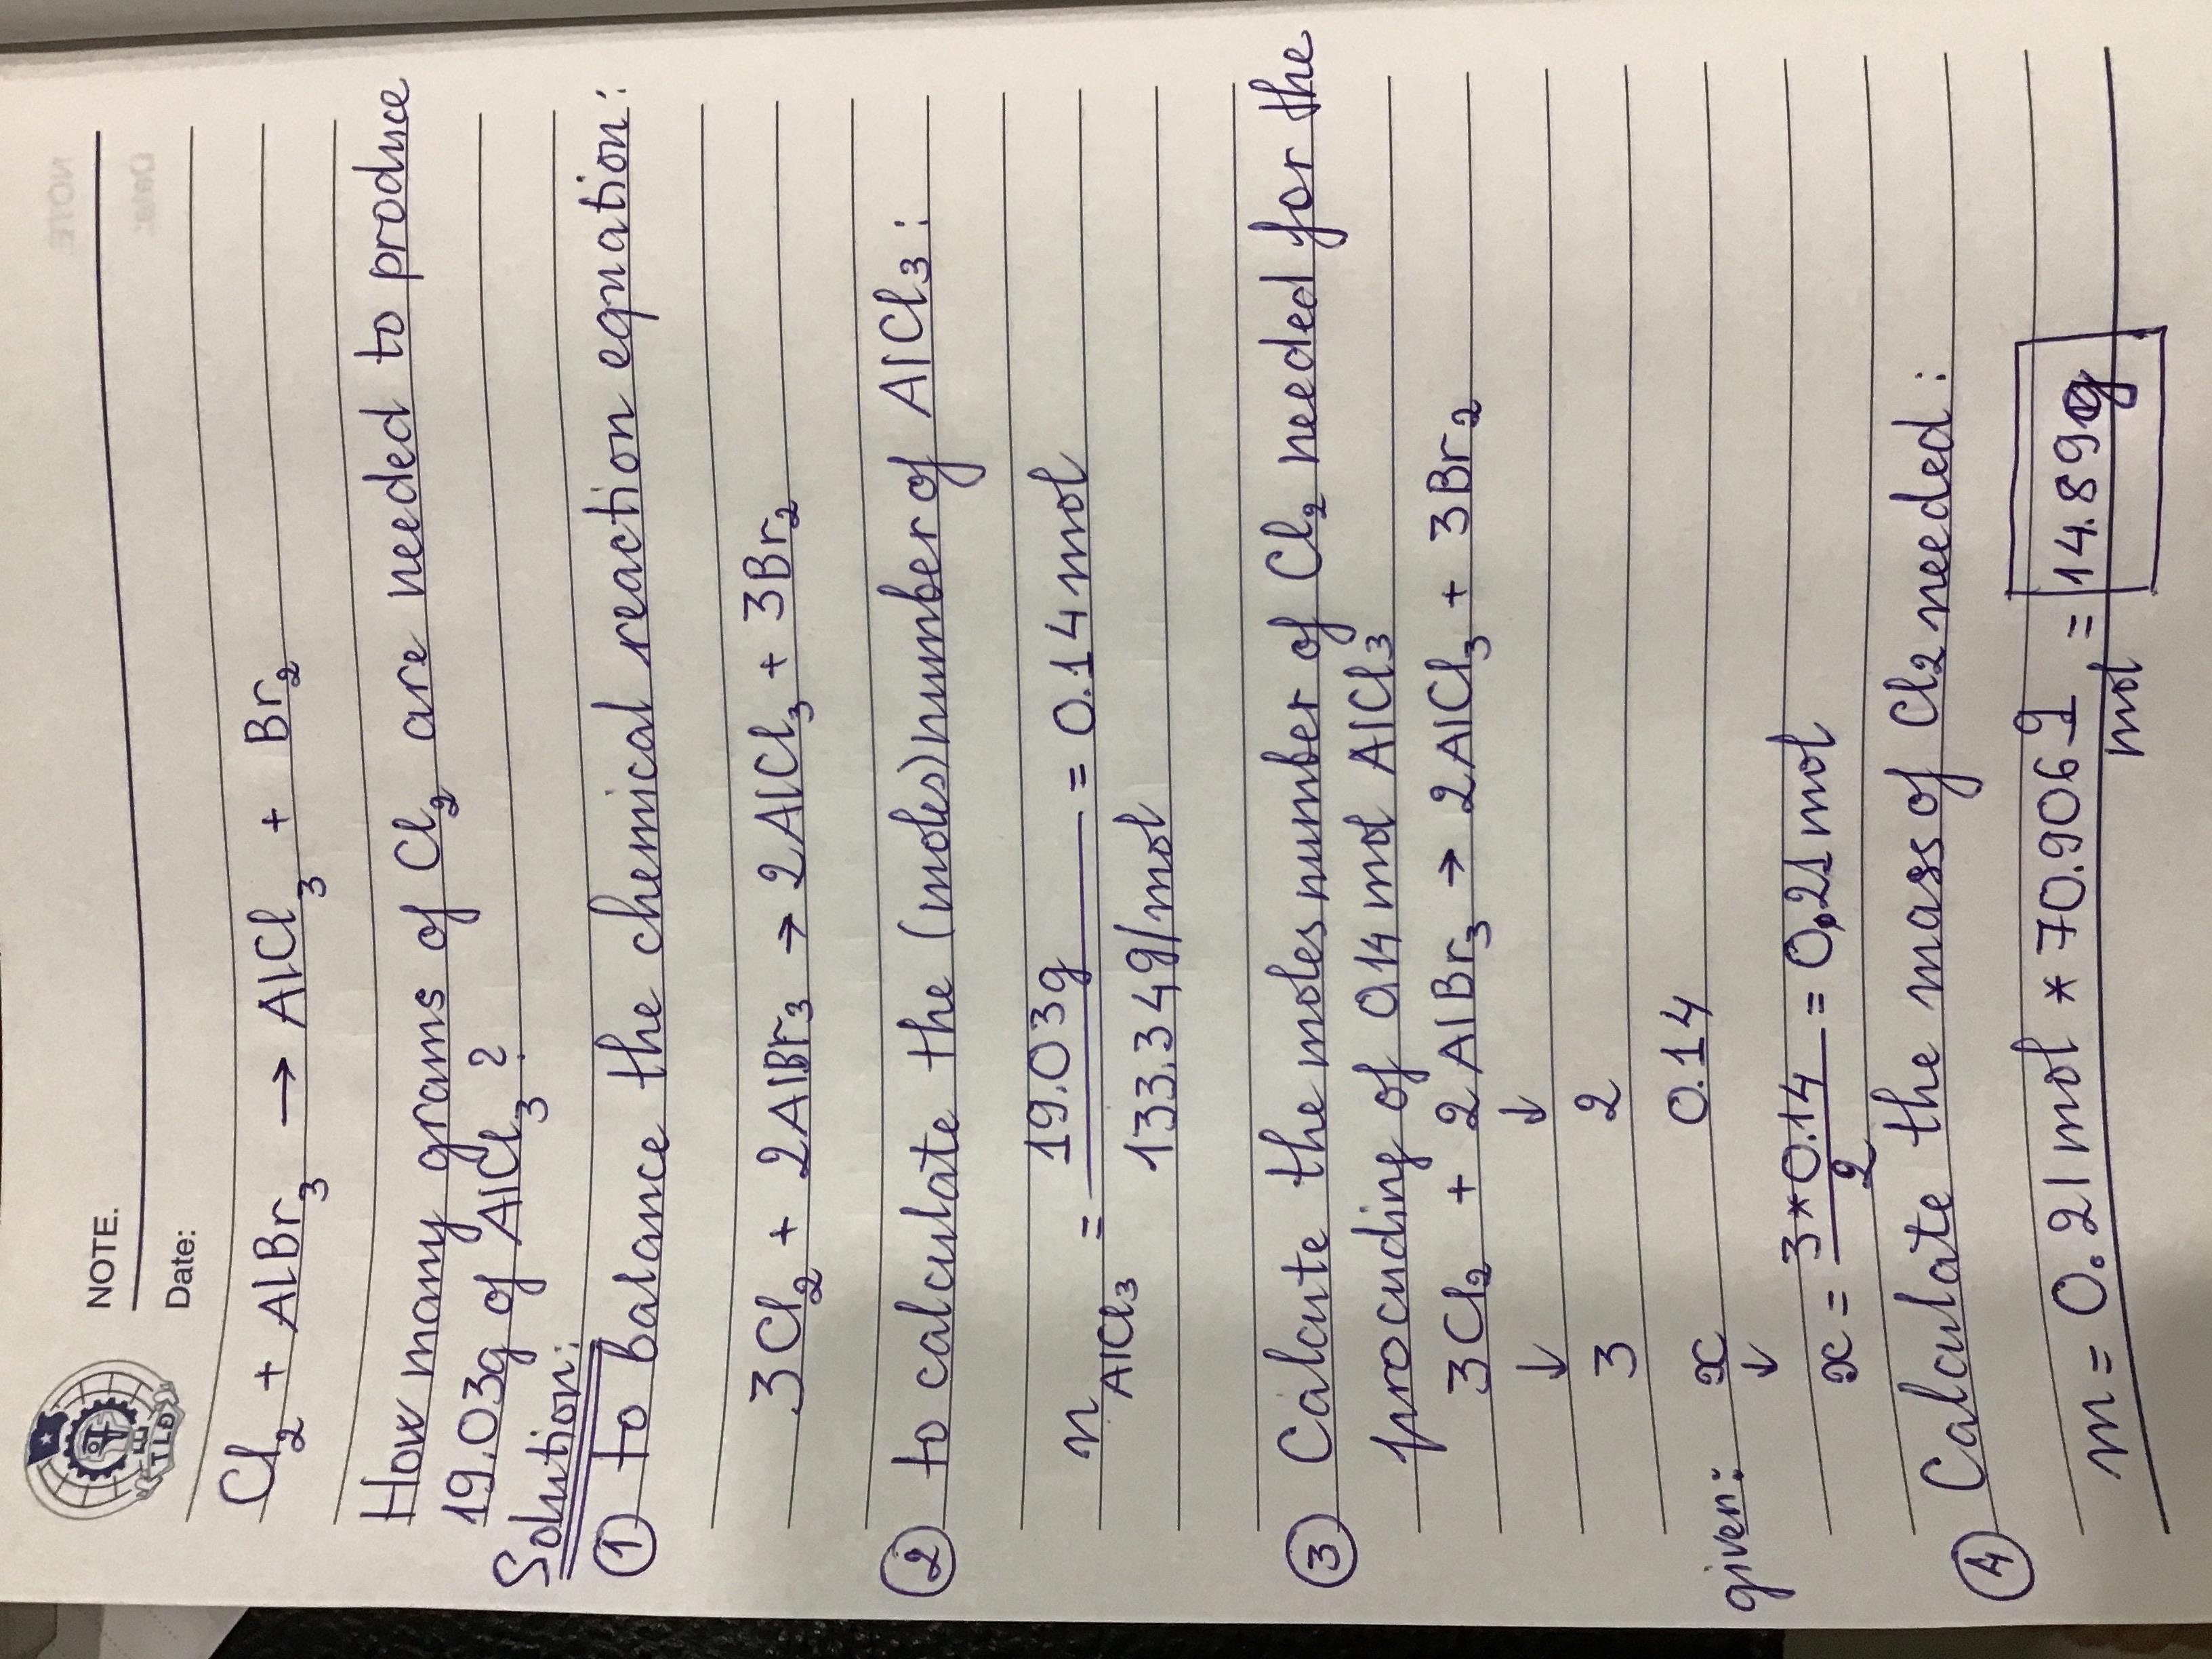 NOTE.
Date:
Cl₂ + AlBr₃ → AlCl₃ + Br₂
How many grams of Cl₂ are needed to produce
19.03g of AlCl₃?
Solution:
① to balance the chemical reaction equation:
3Cl₂ + 2AlBr₃ → 2AlCl₃ + 3Br₂
② to calculate the (moles) number of AlCl₃:
n AlCl₃ = 19.03g / 133.34g/mol = 0.14 mol
③ Calcute the moles number of Cl₂ needed for the
procuding of 0.14 mol AlCl₃
3Cl₂ + 2AlBr₃ → 2AlCl₃ + 3Br₂
↓ ↓
3 2
given: x 0.14
↓
x = 3*0.14 / 2 = 0,21 mol
④ Calculate the mass of Cl₂ needed:
m = 0.21 mol * 70.906 g/mol = 14.89g